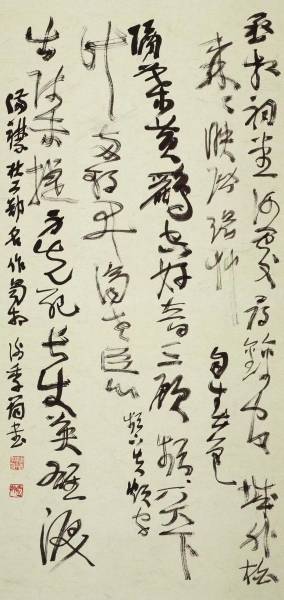 丞相祠堂何處尋錦官城外柏
森々映階碧草自春色
隔葉黃鸝空好音三顧頻天下
計兩朝開濟老臣心頻下失煩字
出師未捷身先死長使英雄淚
滿襟杜工部名作蜀相書